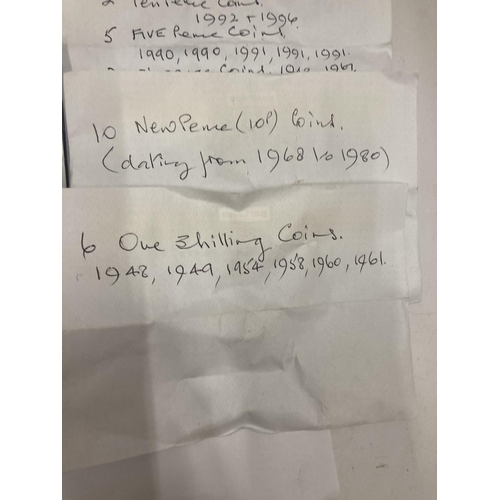 2 Ten Pence Coins.
1992 + 1996
5 FIVE Pence Coins.
1990, 1990, 1991, 1991, 1991.
Coins. 1967.
10 New Pence (10P) Coins.
(dating from 1968 to 1980)
6 One Shilling Coins.
1948, 1949, 1954, 1958, 1960, 1961.